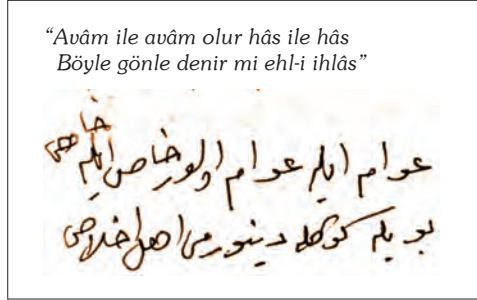 “Avâm ile avâm olur hâs ile hâs
Böyle gönle denir mi ehl-i ihlâs”
عوام ایله عوام اولور خاص ایله خاص
بویله کوکله دینورمی اهل اخلاص